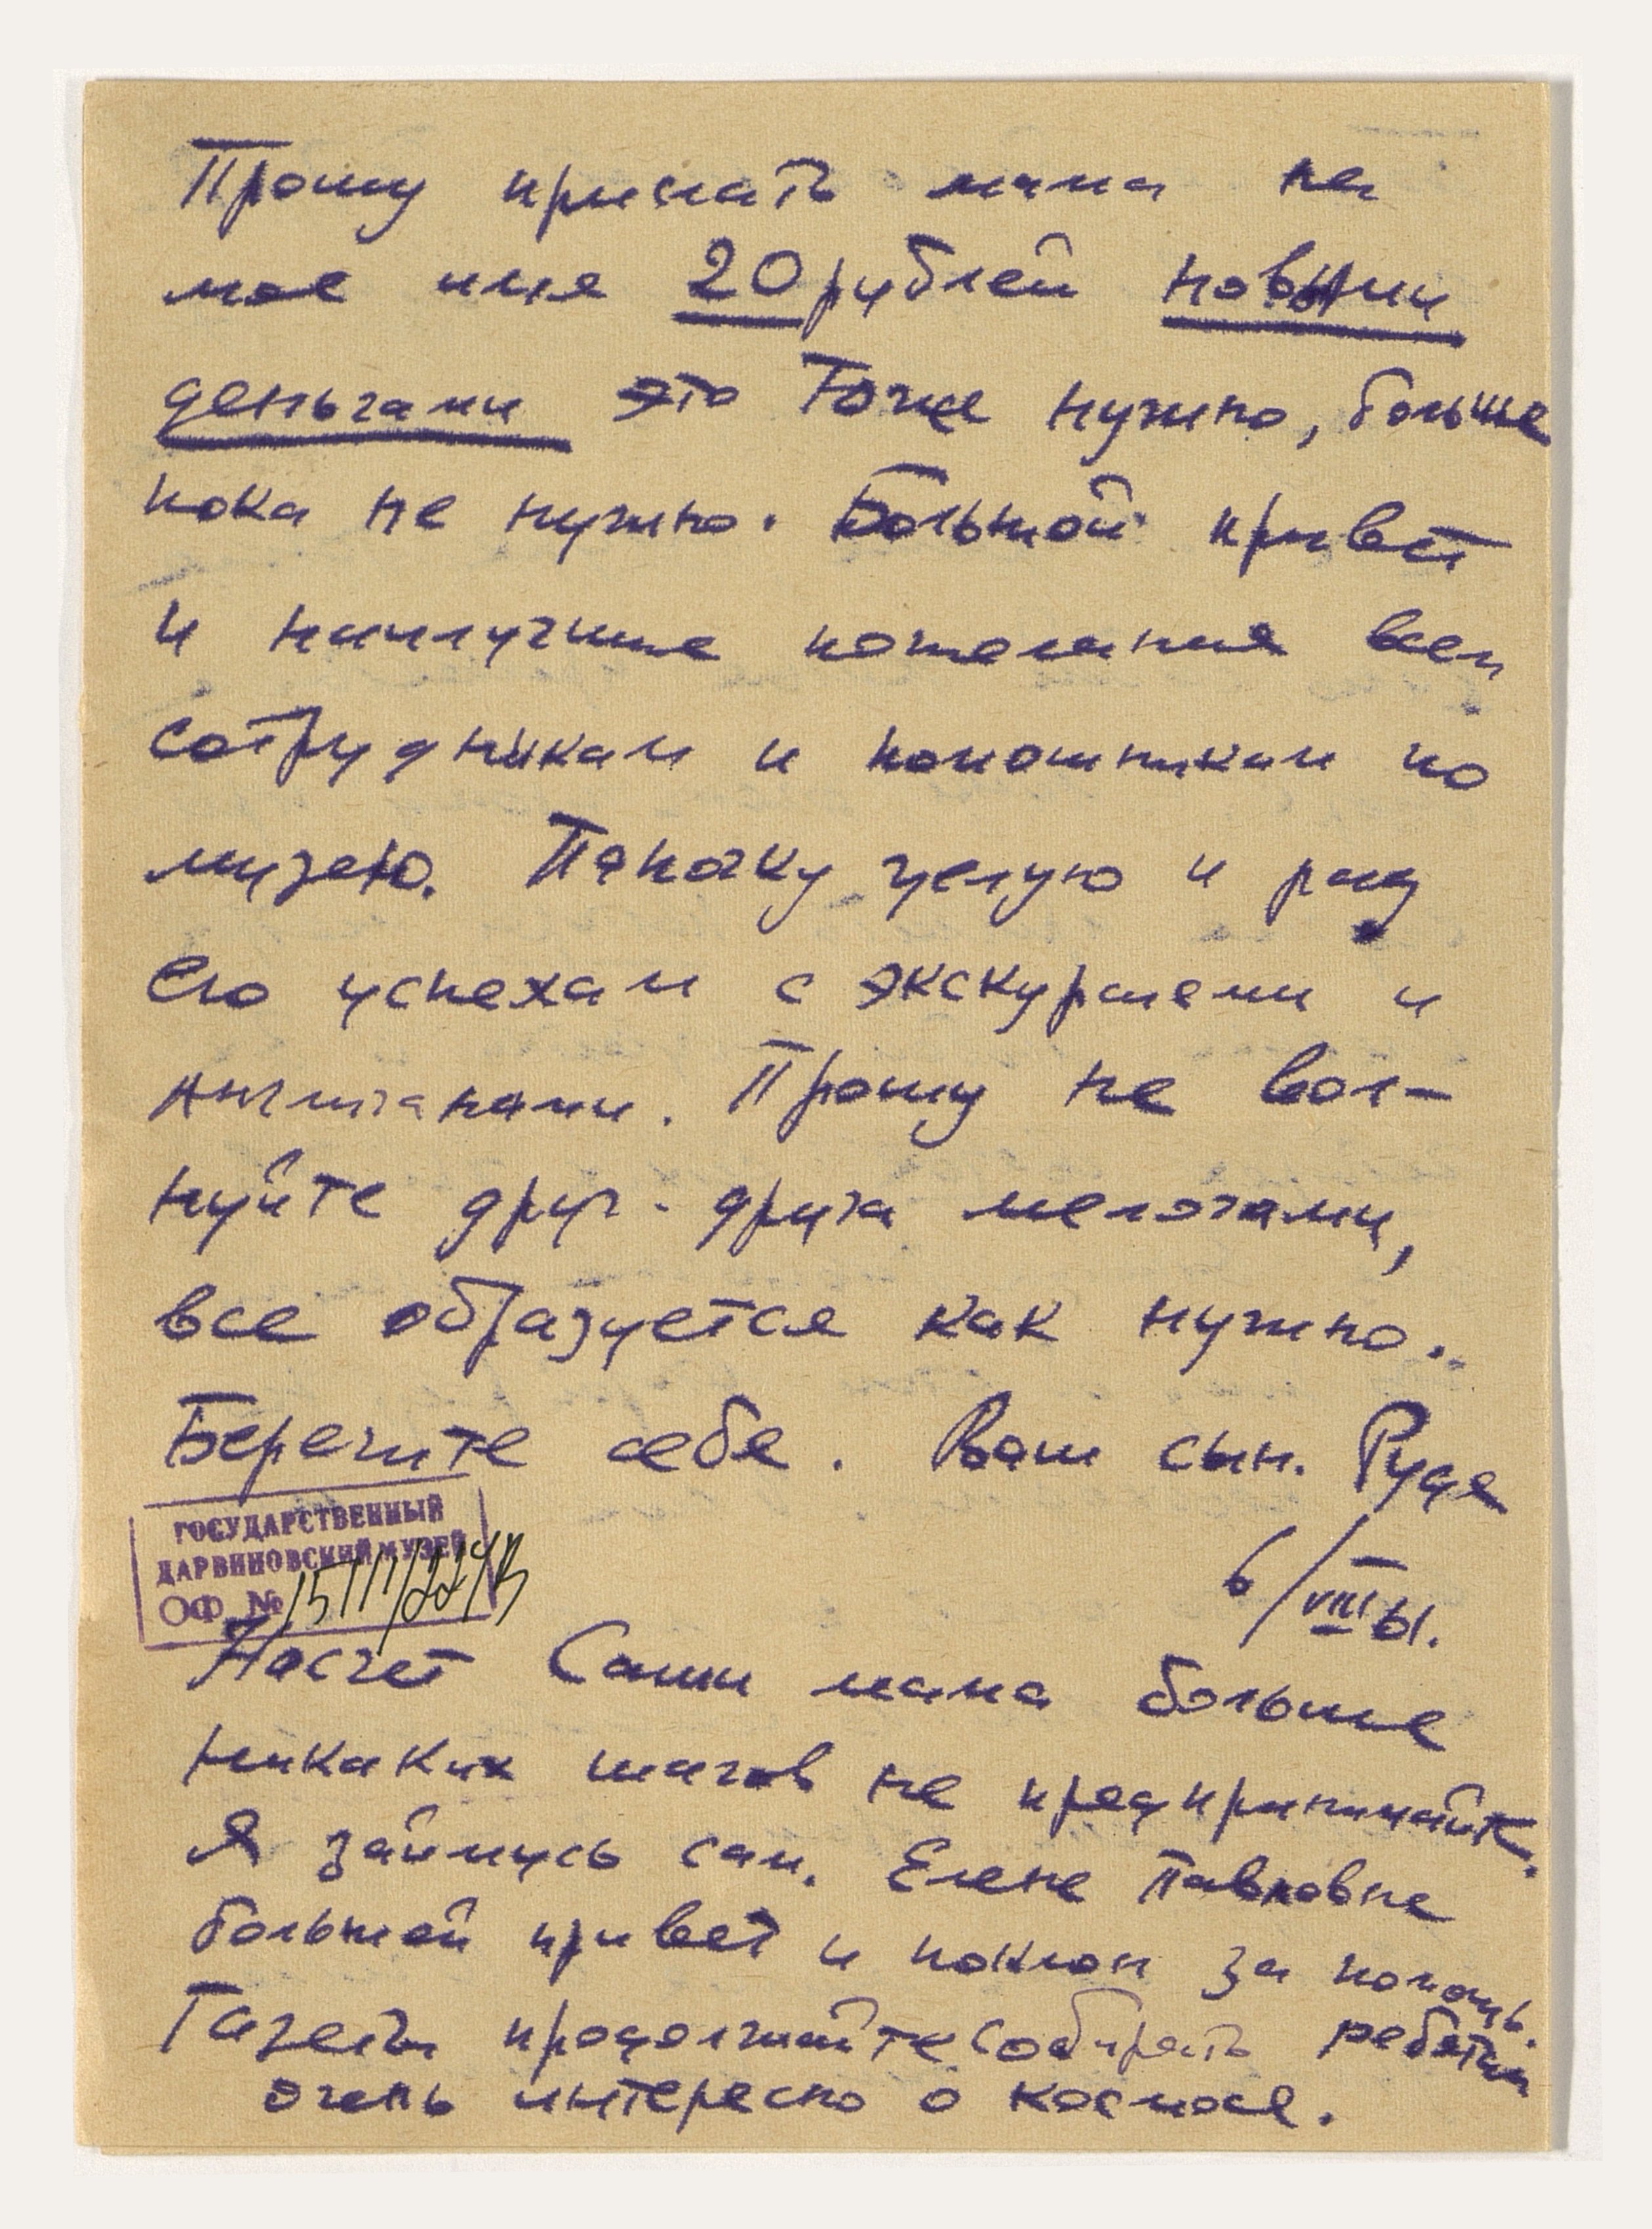 Прошу прислать мама на
мое имя 20 рублей новыми
деньгами это тоже нужно, больше
пока не нужно. Большой привет
и наилучшие пожелания всем
сотрудникам и помошникам по
музею. Папочку целую и рад
его успехам с экскурсиями и
англичанами. Прошу не вол-
нуйте друг-друга мелочами,
все образуется как нужно.
Берегите себя. Ваш сын. Рудя
6/VIII 61.
ГОСУДАРСТВЕННЫЙ
ДАРВИНОВСКИЙ МУЗЕЙ
ОФ №
Насчет Саши мама больше
никаких шагов не предпринимайте.
Я займусь сам. Елене Павловне
большой привет и поклон за помощь.
Газеты продолжайте собирать ребятам
очень интересно о космосе.